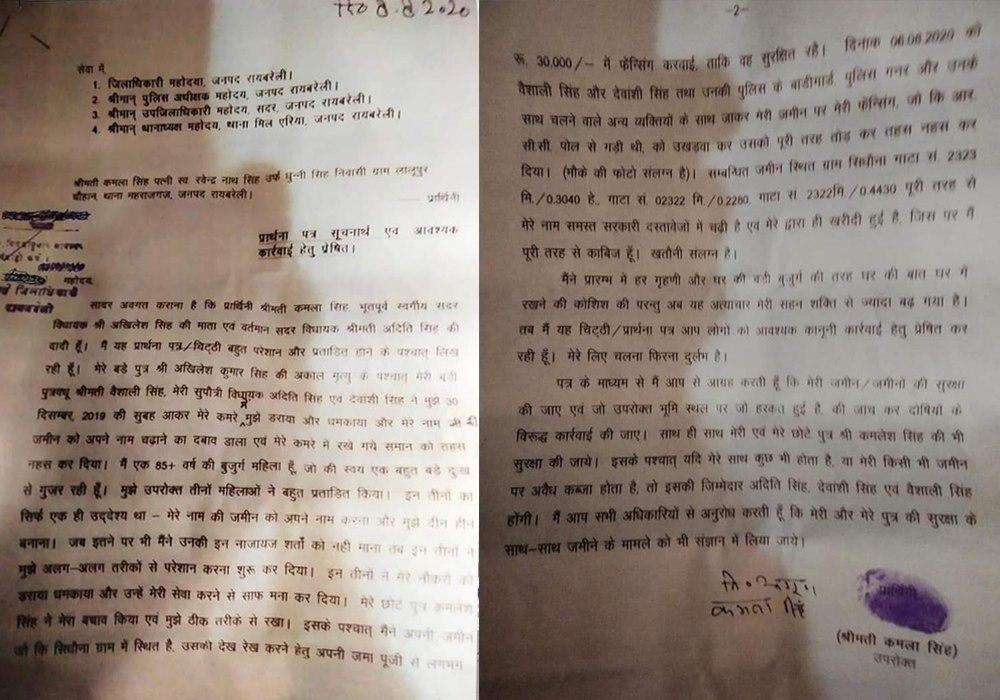 8.8.2020
सेवा में
1. जिलाधिकारी महोदया, जनपद रायबरेली।
2. श्रीमान् पुलिस अधीक्षक महोदय, जनपद रायबरेली।
3. श्रीमान् उपजिलाधिकारी महोदय, सदर, जनपद रायबरेली।
4. श्रीमान् थानाध्यक्ष महोदय, थाना मिल एरिया, जनपद रायबरेली।
श्रीमती कमला सिंह पत्नी स्व. रवेन्द्र नाथ सिंह उर्फ धुन्नी सिंह निवासी ग्राम लालूपुर
चौहान, थाना महराजगंज, जनपद रायबरेली।
प्रार्थिनी
प्रार्थना पत्र सूचनार्थ एवं आवश्यक
कार्रवाई हेतु प्रेषित।
महोदय,
सादर अवगत कराना है कि प्रार्थिनी श्रीमती कमला सिंह भूतपूर्व स्वर्गीय सदर
विधायक श्री अखिलेश सिंह की माता एवं वर्तमान सदर विधायक श्रीमती अदिति सिंह की
दादी हूँ। मैं यह प्रार्थना पत्र/चिट्ठी बहुत परेशान और प्रताड़ित होने के पश्चात् लिख
रही हूँ। मेरे बड़े पुत्र श्री अखिलेश कुमार सिंह की अकाल मृत्यु के पश्चात् मेरी बड़ी
पुत्रवधू श्रीमती वैशाली सिंह, मेरी सुपौत्री विधायक अदिति सिंह एवं देवांशी सिंह ने मुझे 30
दिसम्बर, 2019 की सुबह आकर मेरे कमरे मुझे डराया और धमकाया और मेरे नाम की
जमीन को अपने नाम चढ़ाने का दबाव डाला एवं मेरे कमरे में रखे गये समान को तहस
नहस कर दिया। मैं एक 85+ वर्ष की बुजुर्ग महिला हूँ, जो की स्वयं एक बहुत बड़े दुःख
से गुजर रही हूँ। मुझे उपरोक्त तीनों महिलाओं ने बहुत प्रताड़ित किया। इन तीनों का
सिर्फ एक ही उद्देश्य था – मेरे नाम की जमीन को अपने नाम करना और मुझे दीन हीन
बनाना। जब इतने पर भी मैंने उनकी इन नाजायज शर्तों को नहीं माना तब इन तीनों न
मुझे अलग-अलग तरीकों से परेशान करना शुरू कर दिया। इन तीनों न मेरे नौकरों को
डराया धमकाया और उन्हें मेरी सेवा करने से साफ मना कर दिया। मेरे छोटे पुत्र कमलेश
सिंह ने मेरा बचाव किया एवं मुझे ठीक तरीके से रखा। इसके पश्चात् मैंने अपनी जमीन
जो कि सिधौना ग्राम में स्थित है, उसकी देख रेख करने हेतु अपनी जमा पूंजी से लगभग
-2-
रू. 30,000/- में फेन्सिंग करवाई, ताकि वह सुरक्षित रहे। दिनांक 06.06.2020 को
वैशाली सिंह और देवांशी सिंह तथा उनकी पुलिस के बाडीगार्ड, पुलिस गनर और उनके
साथ चलने वाले अन्य व्यक्तियों के साथ जाकर मेरी जमीन पर मेरी फेन्सिंग, जो कि आर.
सी.सी. पोल से गड़ी थी, को उखड़वा कर उसको पूरी तरह तोड़ कर तहस नहस कर
दिया। (मौके की फोटो संलग्न है)। सम्बन्धित जमीन स्थित ग्राम सिधौना गाटा सं. 2323
मि./0.3040 हे., गाटा सं. 02322 मि./0.2280, गाटा स. 2322मि./0.4430 पूरी तरह से
मेरे नाम समस्त सरकारी दस्तावेजो में चढ़ी है एवं मेरे द्वारा ही खरीदी हुई है, जिस पर मैं
पूरी तरह से काबिज हूँ। खतौनी संलग्न है।
मैंने प्रारम्भ में हर गृहणी और घर की बड़ी बुजुर्ग की तरह घर की बात घर में
रखने की कोशिश की परन्तु अब यह अत्याचार मेरी सहन शक्ति से ज्यादा बढ़ गया है।
तब मैं यह चिट्ठी/प्रार्थना पत्र आप लोगों को आवश्यक कानूनी कार्रवाई हेतु प्रेषित कर
रही हूँ। मेरे लिए चलना फिरना दुर्लभ है।
पत्र के माध्यम से मैं आप से आग्रह करती हूँ कि मेरी जमीन/जमीनों की सुरक्षा
की जाए एवं जो उपरोक्त भूमि स्थल पर जो हरकत हुई है, की जांच कर दोषियों के
विरूद्ध कार्रवाई की जाए। साथ ही साथ मेरी एवं मेरे छोटे पुत्र श्री कमलेश सिंह की भी
सुरक्षा की जाये। इसके पश्चात् यदि मेरे साथ कुछ भी होता है, या मेरी किसी भी जमीन
पर अवैध कब्जा होता है, तो इसकी जिम्मेदार अदिति सिंह, देवांशी सिंह एवं वैशाली सिंह
होंगी। मैं आप सभी अधिकारियों से अनुरोध करती हूँ कि मेरी और मेरे पुत्र की सुरक्षा के
साथ-साथ जमीने के मामले को भी संज्ञान में लिया जाये।
कमला सिंह
प्रार्थिनी
(श्रीमती कमला सिंह)
उपरोक्त